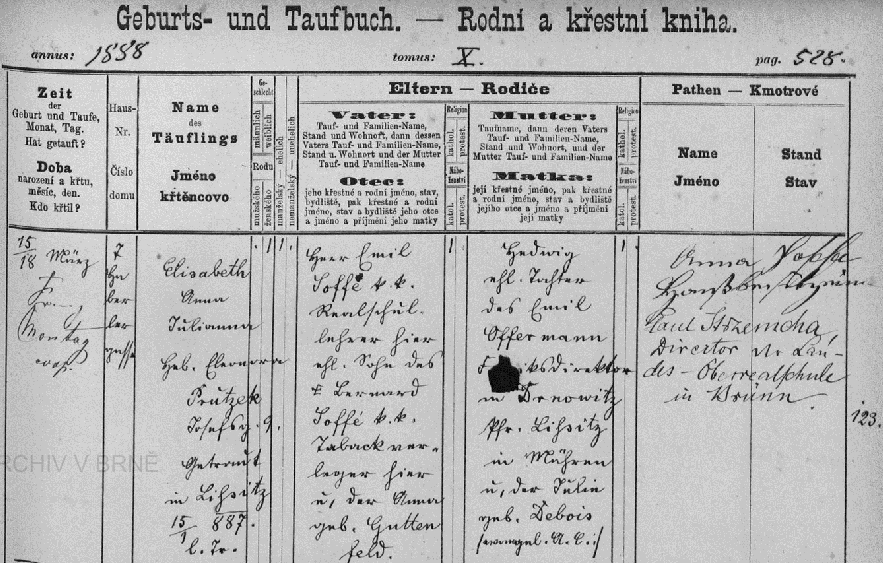 Geburts- und Taufbuch. — Rodní a křestní kniha.
annus: 1888 tomus: X. pag. 528.
Zeit
der
Geburt und Taufe,
Monat, Tag.
Hat getauft?
Doba
narození a křtu,
měsíc, den.
Kdo křtil?
Haus-
Nr.
Číslo
domu
Name
des
Täuflings
Jméno
křtěncovo
Ge-
schlecht
männlich
weiblich
Rodu
mužského
ženského
ehelich
manželský
unehelich
nemanželský
Eltern — Rodiče
Vater:
Tauf- und Familien-Name,
Stand und Wohnort, dann dessen
Vaters Tauf- und Familien-Name,
Stand u. Wohnort und der Mutter
Tauf- und Familien-Name
Otec:
jeho křestné a rodní jméno, stav,
bydliště, pak křestné a rodní
jméno, stav a bydliště jeho otce
a jméno a příjmení jeho matky
Religion
kathol.
protest.
Nábo-
ženství
katol.
protest.
Mutter:
Taufname, dann deren Vaters
Tauf- und Familien-Name,
Stand und Wohnort, und der
Mutter Tauf- und Familien-Name
Matka:
její křestné jméno, pak křestné
a rodní jméno, stav a bydliště
jejího otce a jméno a příjmení
její matky
Religion
kathol.
protest.
Nábo-
ženství
katol.
protest.
Pathen — Kmotrové
Name
Jméno
Stand
Stav
15/18 März
Montag
coop.
7
Ha
ber
ler
gasse
Elisabeth
Anna
Julianna
Heb. Eleonora
Prutzek
Josefsg. 9.
Getraut
in Lißitz
15/1 887.
l. Tr.
1 1
Herr Emil
Soffé k. k.
Realschul-
lehrer hier
ehl. Sohn des
† Bernard
Soffé k. k.
Taback ver-
leger hier
u. der Anna
geb. Gutten
feld.
1
Hedwig
ehl. Tochter
des Emil
Offermann
in Drnowitz
Pfr. Lißitz
in Mähren
u. der Julie
geb. Debois
/evangel. A. C./
1
Anna Soffé
Paul Strzemcha
Director der Lan-
des-Oberrealschule
in Brünn
123.
ARCHIV V BRNĚ